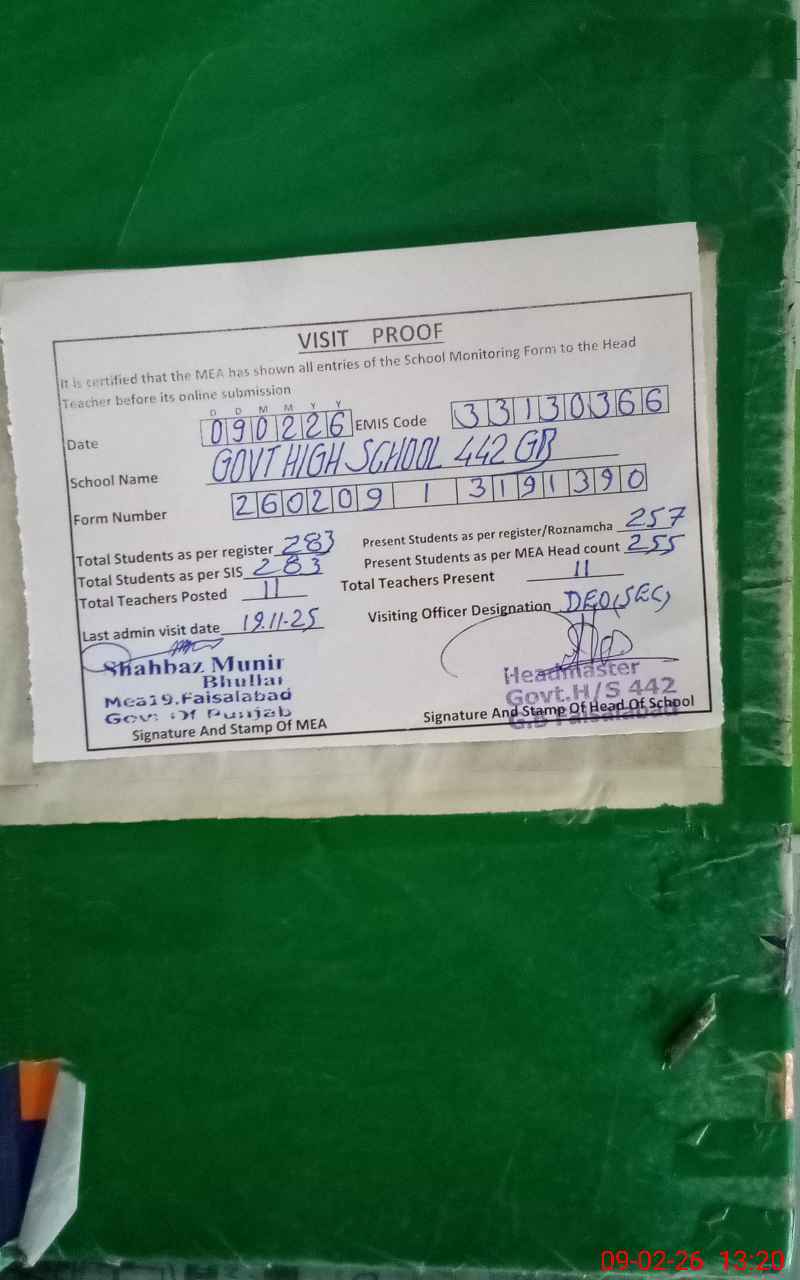 VISIT PROOF
It is certified that the MEA has shown all entries of the School Monitoring Form to the Head
Teacher before its online submission
D D M M Y Y
Date 090226 EMIS Code 33130366
School Name GOVT HIGH SCHOOL 442 GB
Form Number 260209 1 3191390
Total Students as per register 283 Present Students as per register/Roznamcha 257
Total Students as per SIS 283 Present Students as per MEA Head count 255
Total Teachers Posted 11 Total Teachers Present 11
Last admin visit date 19.11-25 Visiting Officer Designation DEO(SEC)
Shahbaz Munir
Bhullar
Mea19.Faisalabad
Gov: Of Punjab
Signature And Stamp Of MEA
Headmaster
Govt.H/S 442
G.B Faisalabad
Signature And Stamp Of Head Of School
09-02-26 13:20